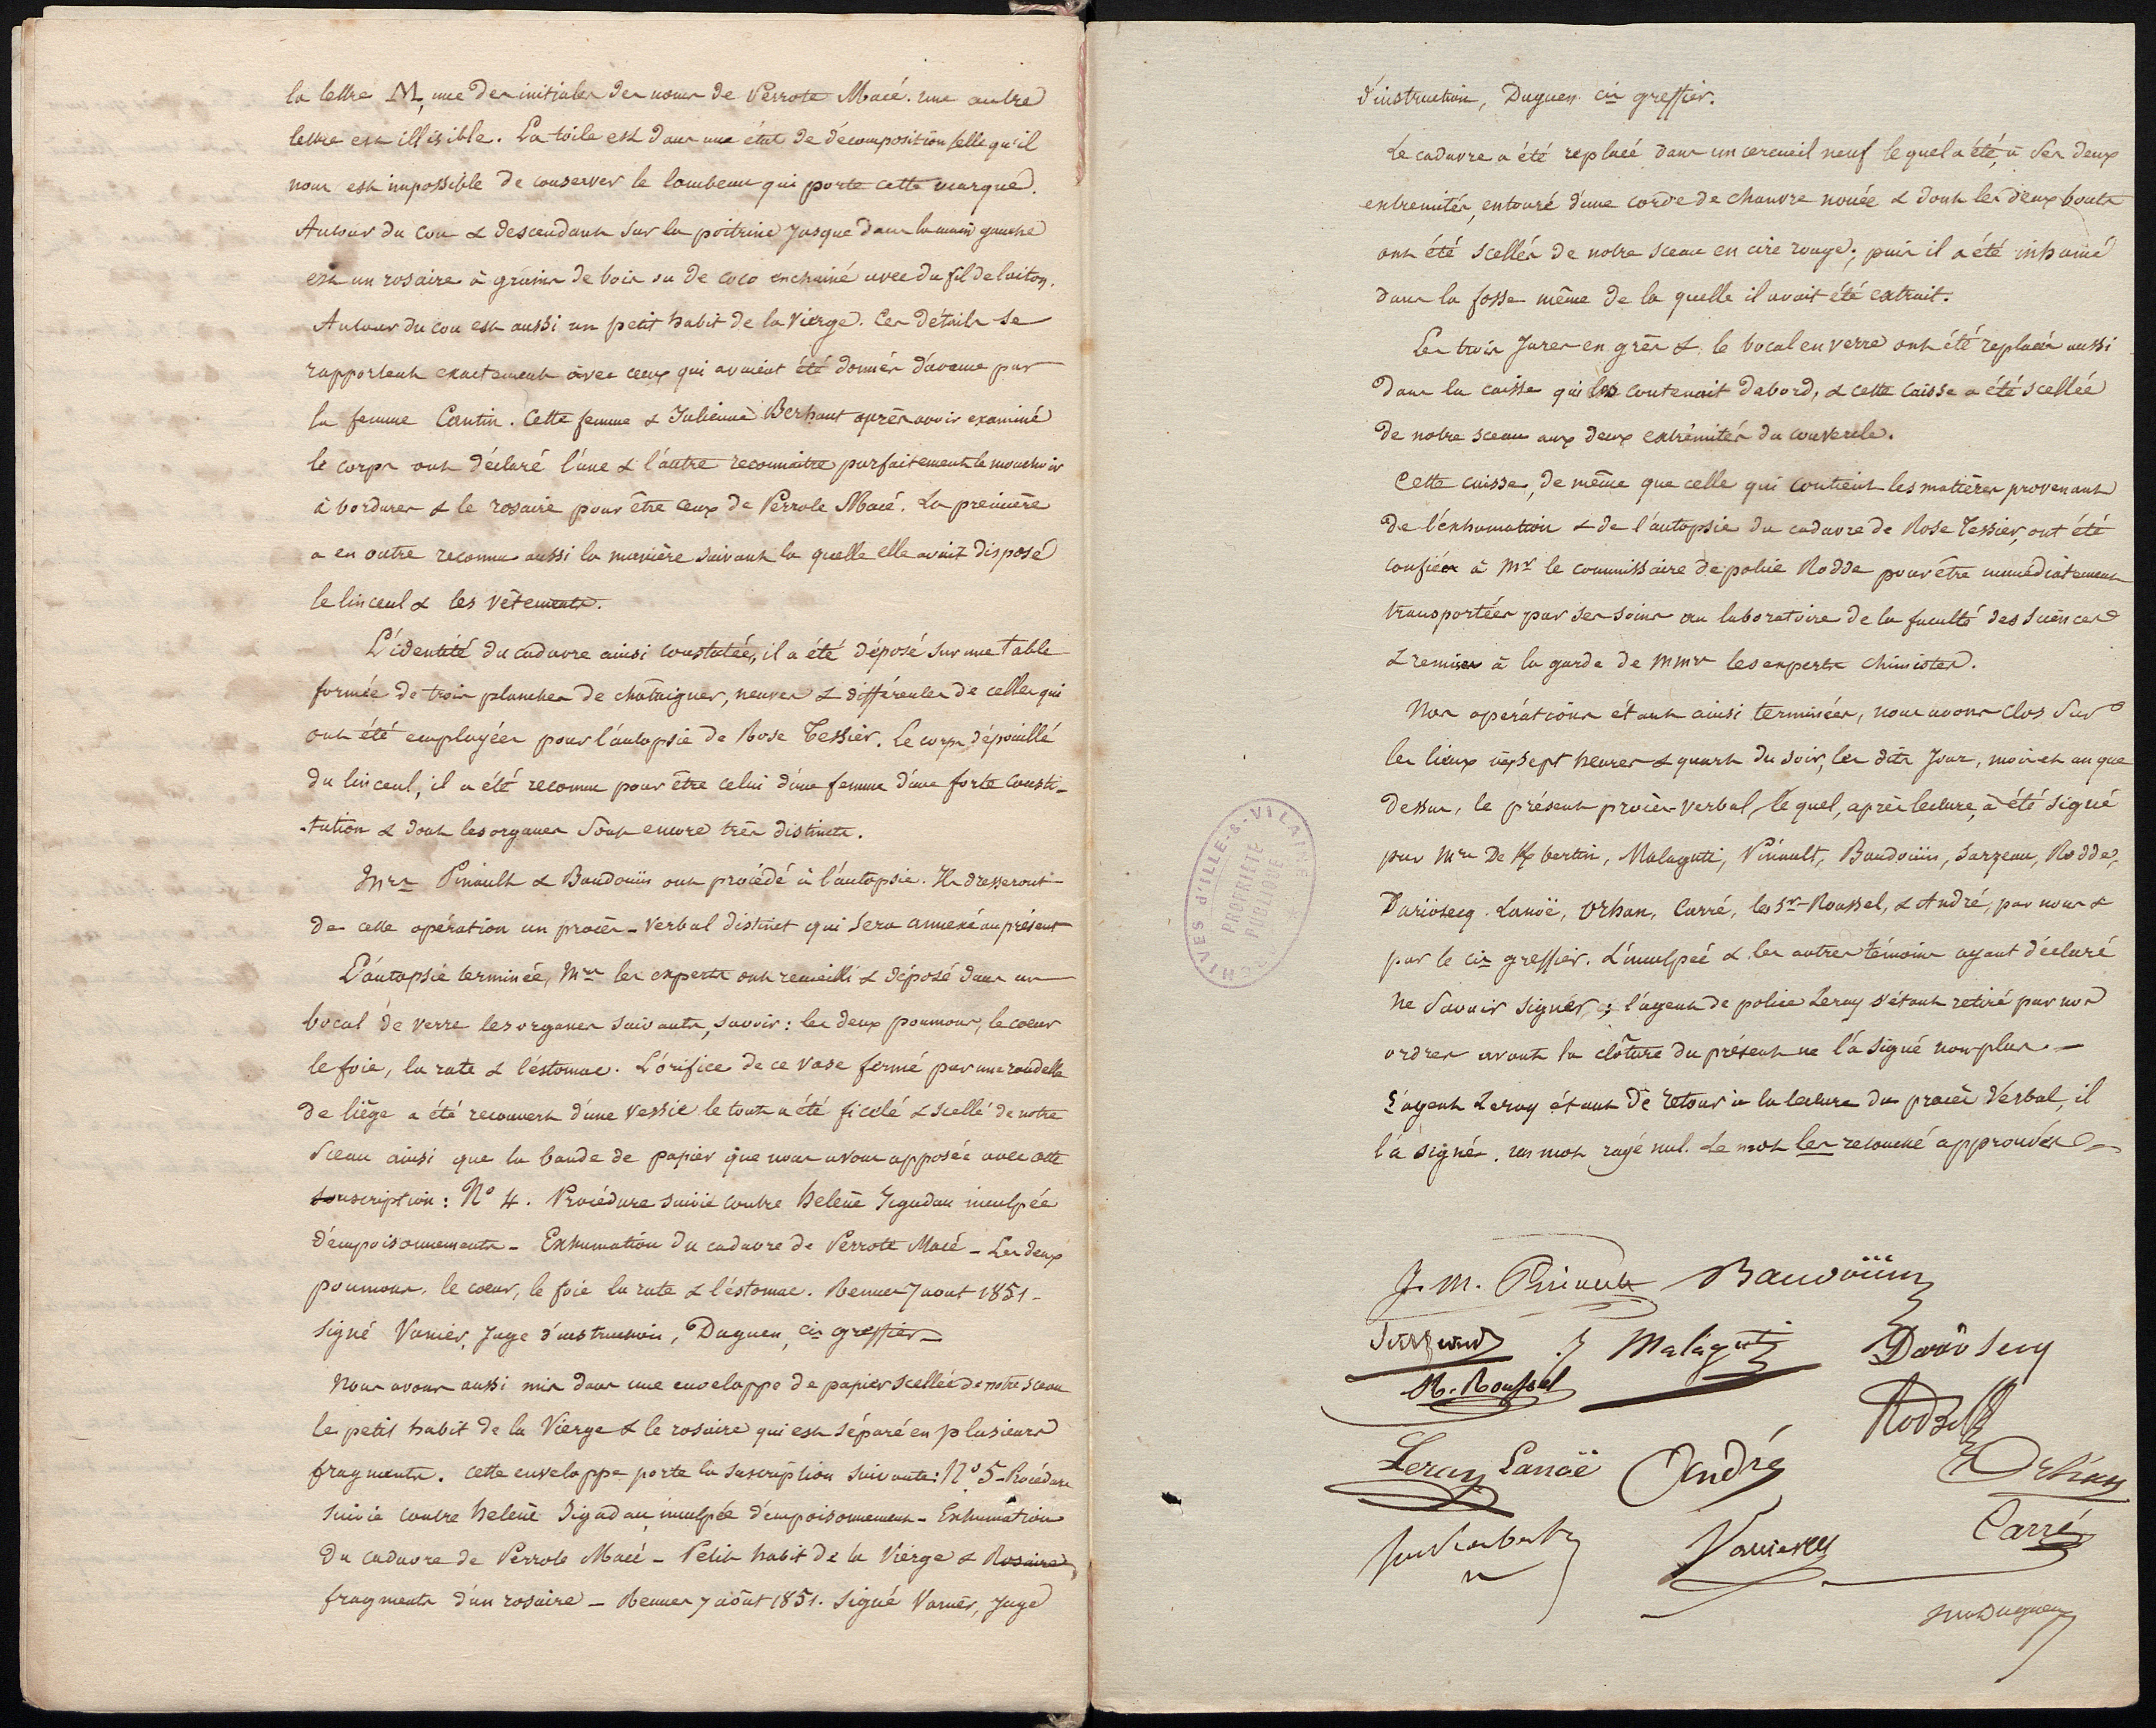 la lettre M, une des initiales des noms de Perrote Macé. une autre
lettre est illisible. La toile est dans un état de décomposition telle qu'il
nous est impossible de conserver le lambeau qui porte cette marque.
Autour du cou & descendant sur la poitrine jusque dans la main gauche
est un rosaire à grains de bois ou de coco enchainé avec du fil de laiton.
Autour du cou est aussi un petit habit de la Vierge. Ces détails se
rapportent exactement avec ceux qui avaient été donnés d'avance par
la femme Cantin. Cette femme & Julienne Berhaut après avoir examiné
le corps ont déclaré l'une & l'autre reconnaitre parfaitement le mouchoir
à bordures & le rosaire pour être ceux de Perrote Macé. La première
a en outre reconnu aussi la manière suivant la quelle elle avait disposé
le linceul & les vêtements.
L'identité du cadavre ainsi constatée, il a été déposé sur une table
formée de trois planches de châtaigner, neuves & différentes de celles qui
ont été employées pour l'autopsie de Rose Tessier. Le corps dépouillé
du linceul, il a été reconnu pour être celui d'une femme d'une forte consti-
-tution & dont les organes sont encore très distincts.
Mrs Pinault & Baudouin ont procédé à l'autopsie. Ils dresseront
de cette opération un procès-verbal distinct qui sera annexé au présent
L'autopsie terminée, Mrs les experts ont recueilli & déposé dans un
bocal de verre les organes suivants, savoir: les deux poumons, le coeur
le foie, la rate & l'estomac. L'orifice de ce vase fermé par une rondelle
de liège a été recouvert d'une vessie le tout a été ficelé & scellé de notre
sceau ainsi que la bande de papier que nous avons apposée avec cette
suscription: N° 4. Procédure suivie contre helene Jegadau inculpée
d'empoisonnements - Exhumation du cadavre de Perrote Macé - Les deux
poumons, le coeur, le foie la rate & l'estomac. Rennes 7 aout 1851 -
signé Vanier, Juge d'instruction, Duguen, cis greffier -
Nous avons aussi mis dans une enveloppe de papier scellée de notre sceau
le petit habit de la Vierge & le rosaire qui est séparé en plusieurs
fragments. cette enveloppe porte la suscription suivante: N° 5 - Procédure
suivie contre helene Jegadau, inculpée d'empoisonnement - Exhumation
du cadavre de Perrote Macé - Petit habit de la Vierge & Rosaire
fragments d'un rosaire - Rennes 7 août 1851. signé Vanier, Juge
d'instruction, Duguen cis greffier.
Le cadavre a été replacé dans un cercueil neuf lequel a été, à ses deux
extremités, entouré d'une corde de chanvre nouée & dont les deux bouts
ont été scellés de notre sceau en cire rouge; puis il a été inhumé
dans la fosse même de la quelle il avait été extrait.
Les trois Jarres en grès & le bocal en verre ont été replacés aussi
dans la caisse qui les contenait d'abord, & cette caisse a été scellée
de notre sceau aux deux extrémités du couvercle.
Cette caisse, de même que celle qui contient les matières provenant
de l'exhumation & de l'autopsie du cadavre de Rose Tessier, ont été
confiées à Mr le commissaire de police Rodde pour être immédiatement
transportées par ses soins au laboratoire de la faculté des sciences
& remises à la garde de MMrs les experts chimistes.
Nos opérations étant ainsi terminées, nous avons clos sur
les lieux à sept heures & quart du soir, les dits Jour, mois et an que
dessus, le présent procès-verbal lequel, après lecture, a été signé
par Mrs De Kbertin, Malaguti, Pinault, Baudouin, Sarzeau, Rodde,
Dariosecq. Lanoë, Orhan, Carré, les Srs Roussel, & André, par nous &
par le cis greffier. L'inculpée & les autres témoins ayant déclaré
ne savoir signer; l'agent de police Leray s'étant retiré par nos
ordres avant la clôture du présent ne l'a signé non plus -
L'agent Leray étant de retour à la lecture du procès verbal, il
l'a signé. un mot rayé nul. Le mot les retouché approuvés
ARCHIVES d'ILLE-&-VILAINE
PROPRIÉTÉ
PUBLIQUE
J. M. Pinault Baudouin
Sarzeau J Malaguti Dariosecq
R. Roussel
Rodde
Leray Lanoë André Orhan
Vanier Carré
Duguen